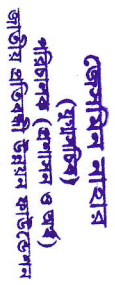 জেসমিন নাহার
(যুগ্মসচিব)
পরিচালক (প্রশাসন ও অর্থ)
জাতীয় প্রতিবন্ধী উন্নয়ন ফাউন্ডেশন